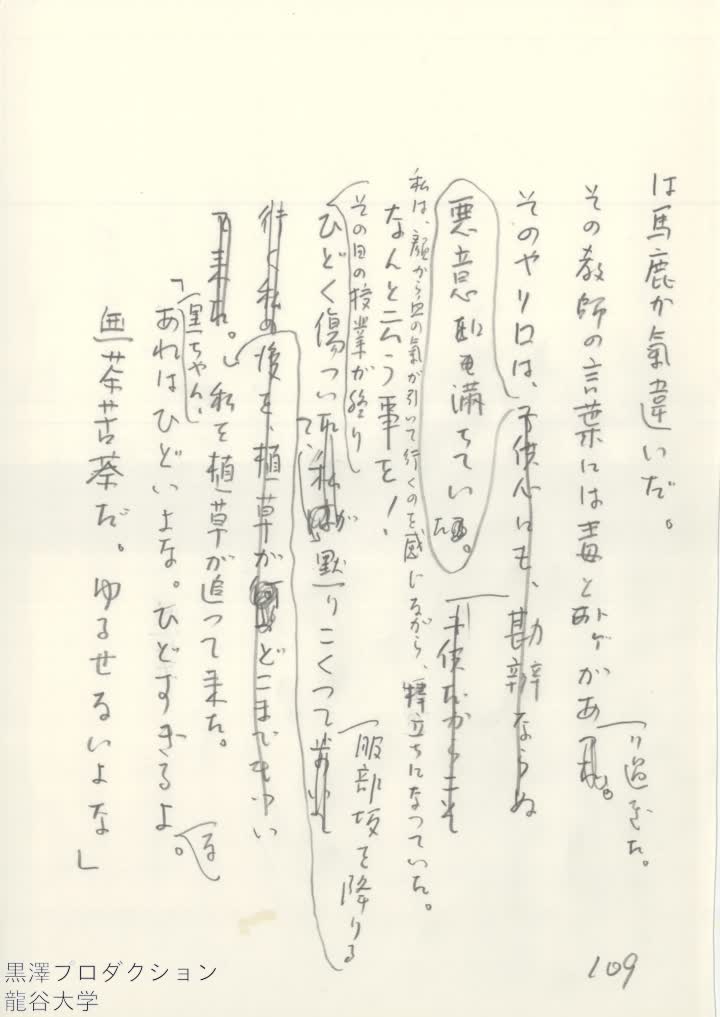 は馬鹿か氣違いだ。
その教師の言葉には毒とトゲがあ
り過ぎた。
そのやり口は、子供心にも、勘辨ならぬ
悪意に満ちていた。
子供だからこそ
私は、顔から血の氣が引いて行くのを感じながら、棒立ちになつていた。
なんと云う事を!
その日の授業が終り
ひどく傷ついて、私が黙りこくつて
服部坂を降りる
行く私の後を、植草がどこまでもつい
て来た。私を植草が追つて来た。
「黒ちゃん、
あれはひどいよな。ひどすぎるよ。
な
無茶苦茶だ。ゆるせるいよな」
109
黒澤プロダクション
龍谷大学